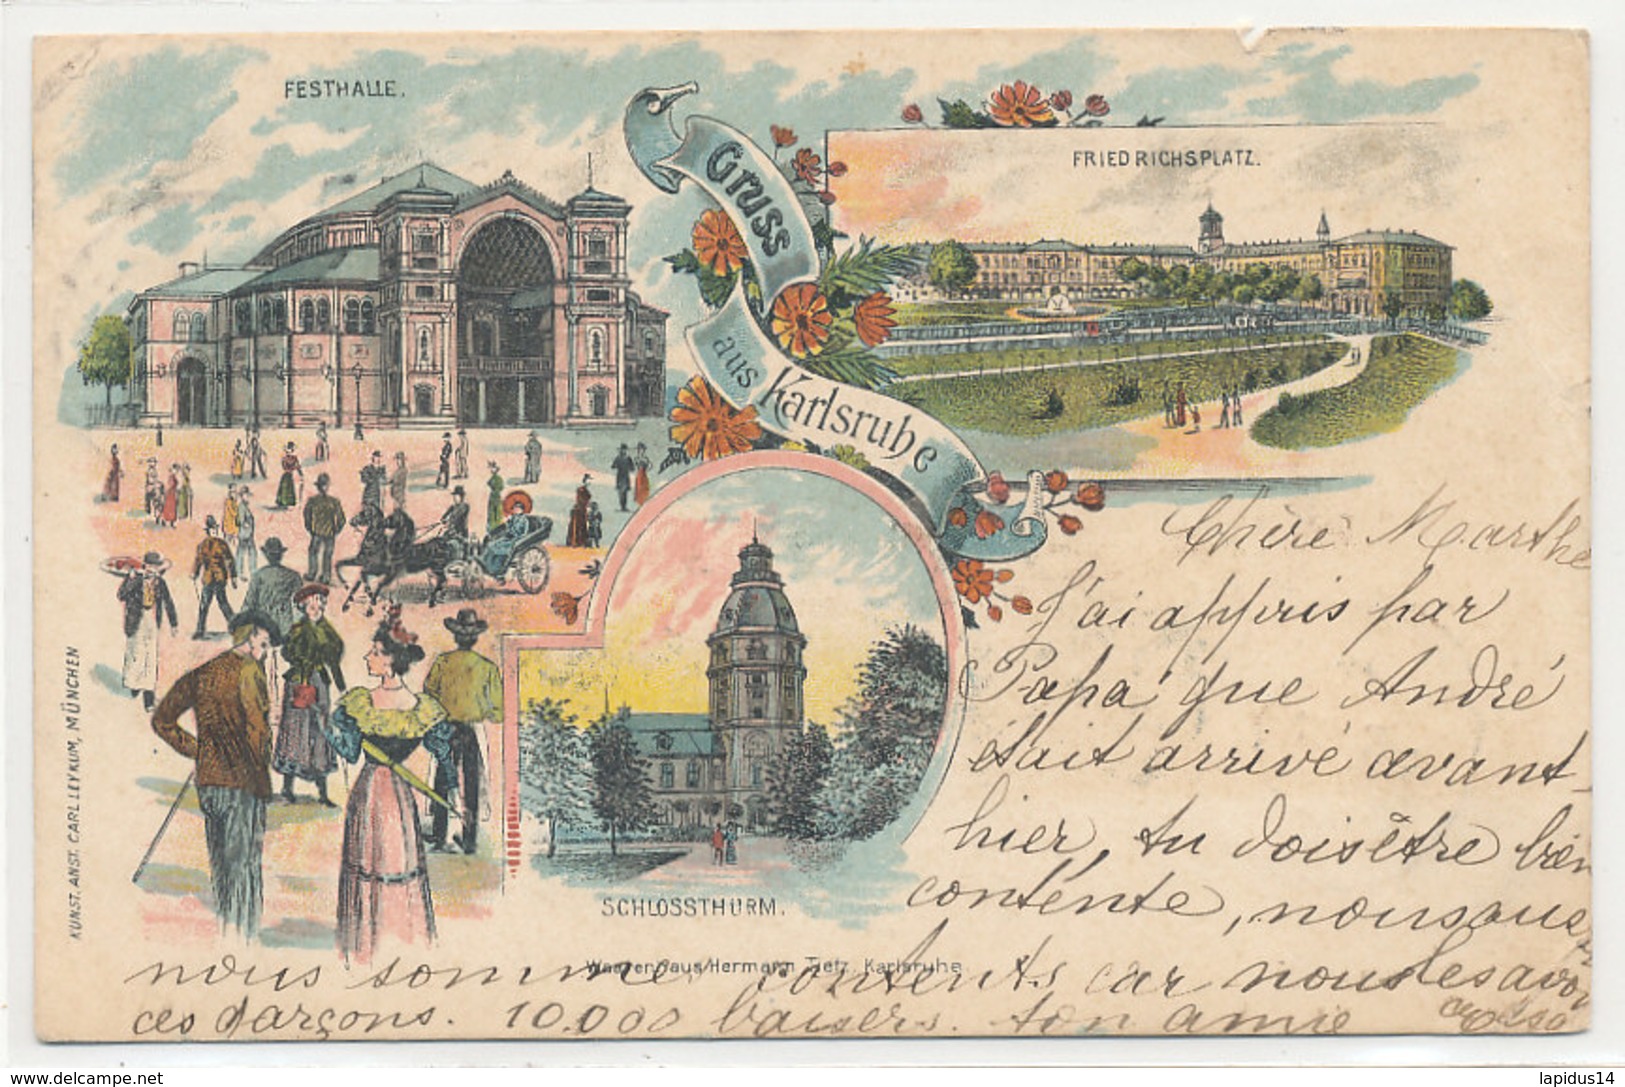 FESTHALLE.
FRIEDRICHSPLATZ.
Gruss
aus
Karlsruhe
SCHLOSSTHURM.
KUNST. ANST. CARL LEYKUM, MÜNCHEN
Waarenhaus Hermann Tietz, Karlsruhe
Chère Marthe
J'ai appris par
Papa que André
était arrivé avant
hier, tu dois être bien
contente, nous aussi
nous somme contents car nous les avon
ces garçons. 10.000 baisers. ton amie
delcampe.net
lapidus14